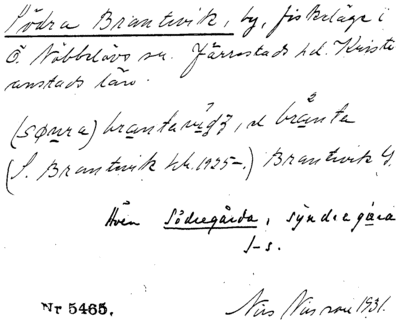 Södra Brantevik, by, fiskeläge i
Ö. Nöbbelövs sn. Järrestads hd. Kristi
anstads län.
(sønra) brantaviḡʒ, el branta
(S. Brantevik hd. 1925-.) Brantevik
Även Södregårda, syndregára
J-s.
Nr 5465.
Nils Nilsson 1931.